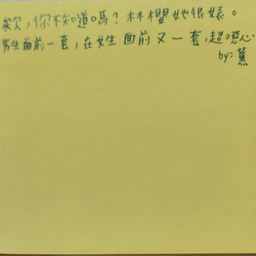 欸，你不知道嗎？林櫻她很婊。
男生面前一套，在女生面前又一套，超噁心
by：薰